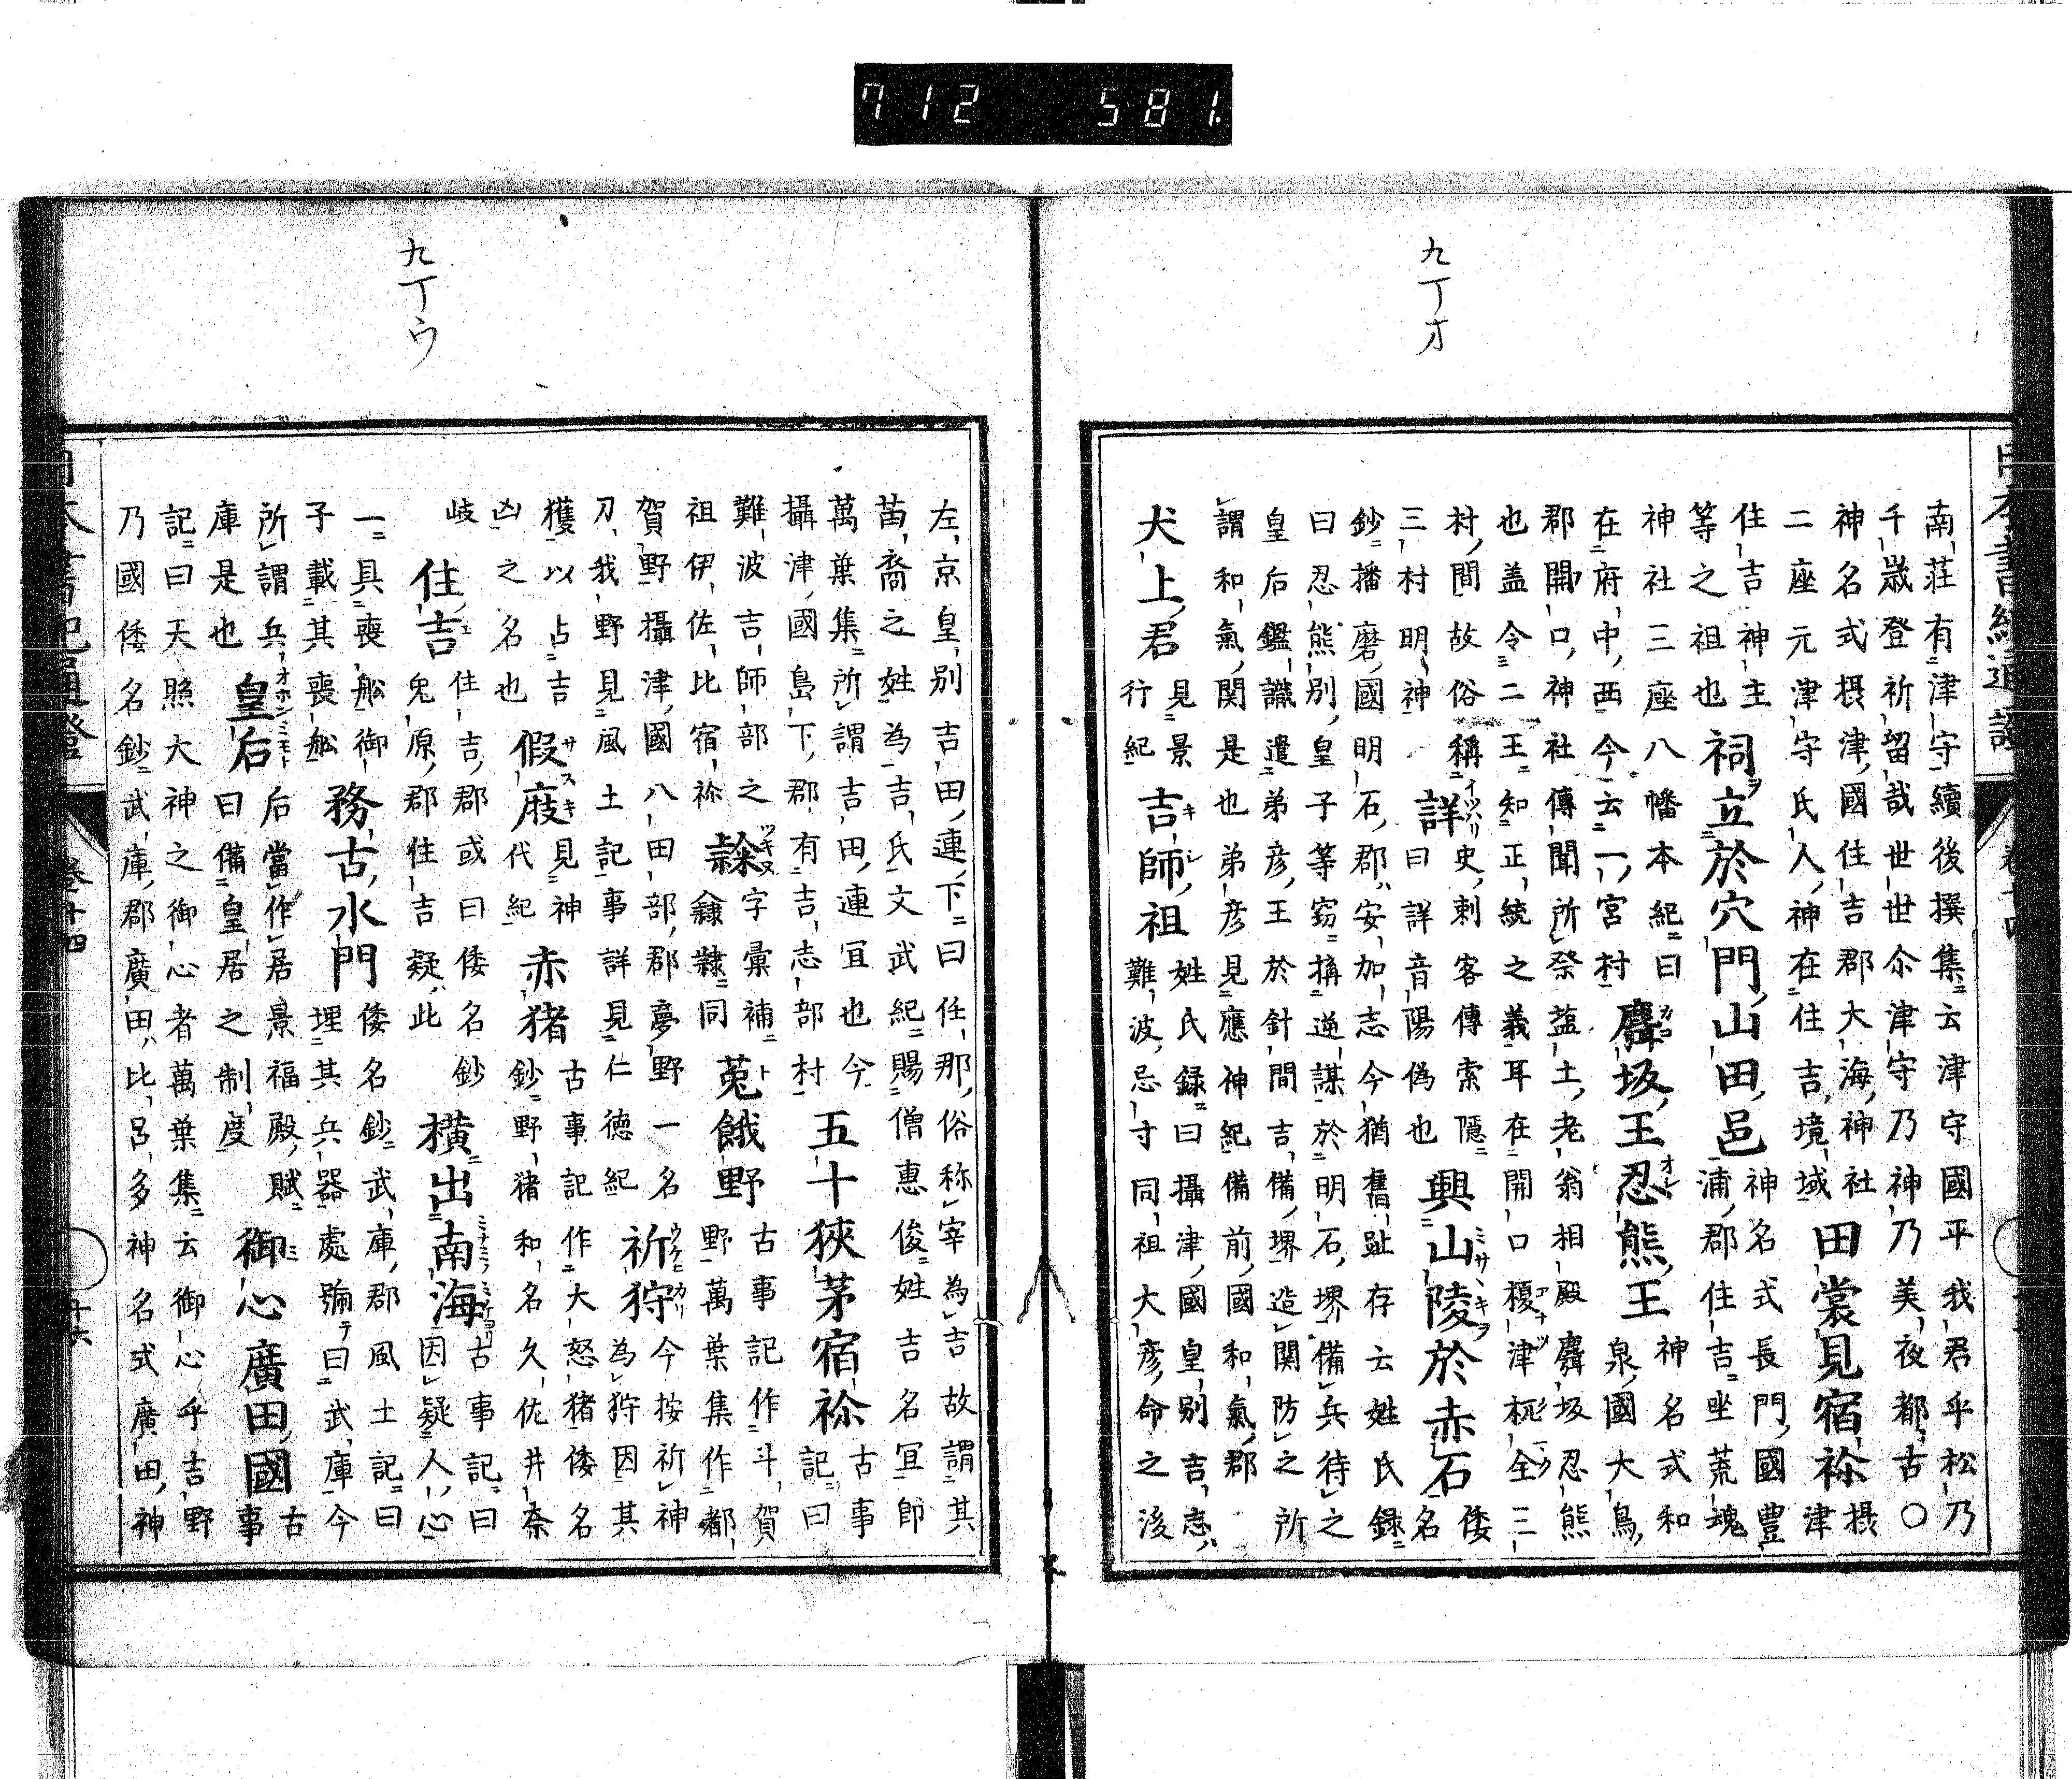 九丁オ
南荘有津守續後撰集云津守國平我君乎松乃
千歳登祈留哉世世尒津守乃神乃美夜都古〇
神名式摂津國住吉郡大海神社
二座元津守氏人神在住吉境域
田裳見宿祢
摂
津
住吉神主
等之祖也
祠立於穴門山田邑
神名式長門國豐
浦郡住吉坐荒魂
神社三座八幡本紀曰
在府中西今云一宮村
麛坂王忍熊王
神名式和
泉國大鳥
郡開口神社傳聞所祭盬土老翁相殿麛坂忍熊
也盖令二王知正統之義耳在開口榎津枙全三
村間故俗稱
三村明神
詳
史刺客傳索隠
曰詳音陽偽也
興山陵於赤石
倭
名
鈔播磨國明石郡安加志今猶舊趾存云姓氏録
曰忍熊別皇子等窃搆逆謀於明石堺備兵待之
皇后鑑識遣弟彦王於針間吉備堺造関防之所
謂和氣関是也弟彦見應神紀備前國和氣郡
犬上君
見景
行紀
吉師祖
姓氏録曰攝津國皇別吉志
難波忌寸同祖大彦命之後
九丁ウ
左京皇別吉田連下曰任那俗称宰為吉故謂其
苗裔之姓為吉氏文武紀賜僧惠俊姓吉名宜卽
萬葉集所謂吉田連冝也今
攝津國島下郡有吉志部村
五十狹茅宿祢
古事
記曰
難波吉師部之
祖伊佐比宿祢
字彙補
隸隷同
菟餓野
古事記作斗賀
野萬葉集作都
賀野攝津國八田部郡夢野一名
刀我野見風土記事詳見仁徳紀
祈狩
今按祈神
為狩因其
獲以占吉
凶之名也
假庪
見神
代紀
赤猪
古事記作大怒猪倭名
鈔野猪和名久佐井奈
岐
住吉
住吉郡或曰倭名鈔
兔原郡住吉疑此
横出南海
古事記曰
因疑人心
一具喪舩御
子載其喪舩
務古水門
倭名鈔武庫郡風土記曰
埋其兵器處號曰武庫今
所謂兵
庫是也
皇后
后當作居景福殿賦
曰備皇居之制度
御心廣田國
古
事
記曰天照大神之御心者萬葉集云御心乎吉野
乃國倭名鈔武庫郡廣田比呂多神名式廣田神